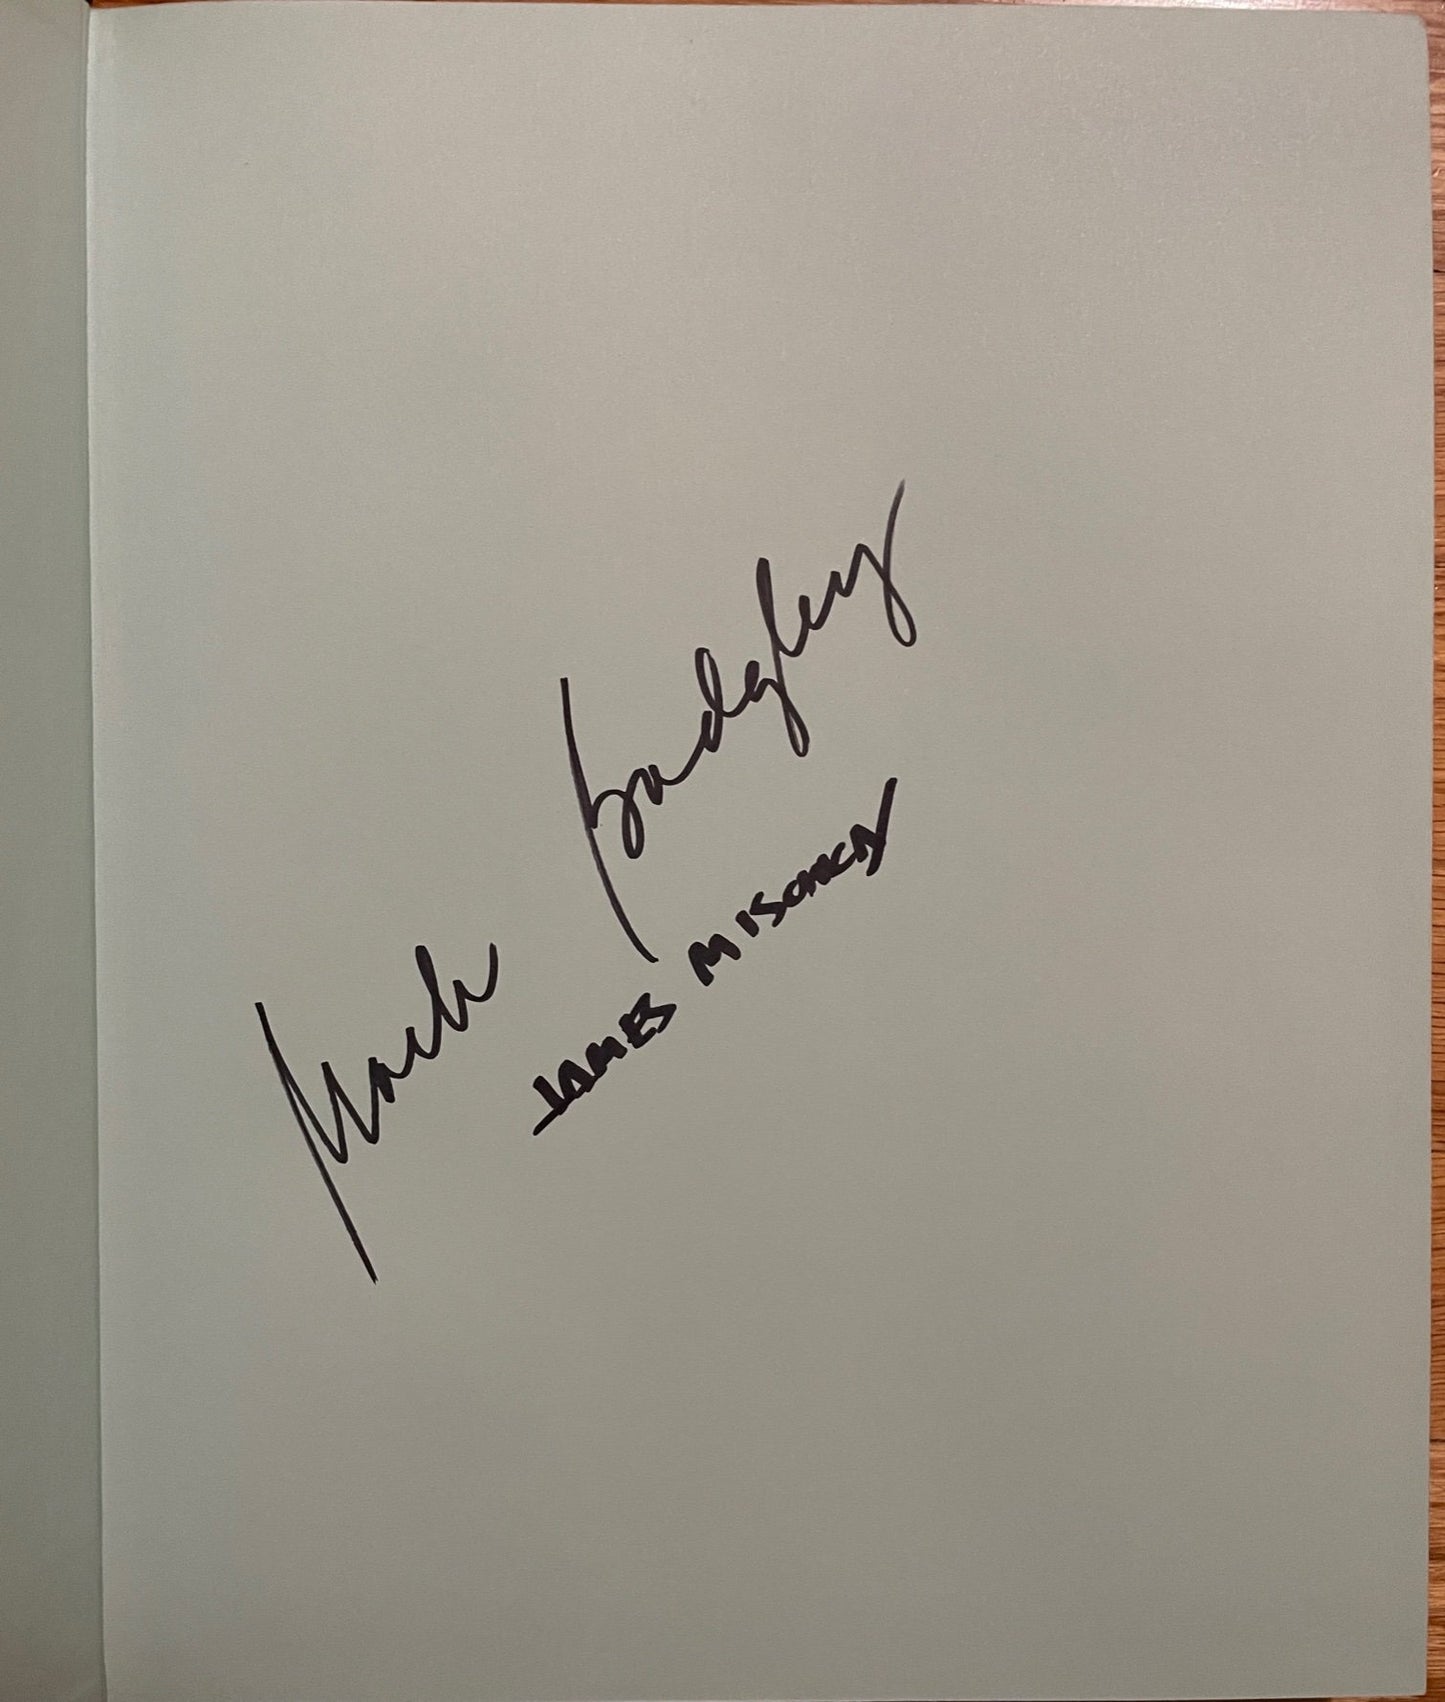 Mark Badgley
JAMES MISCHKA